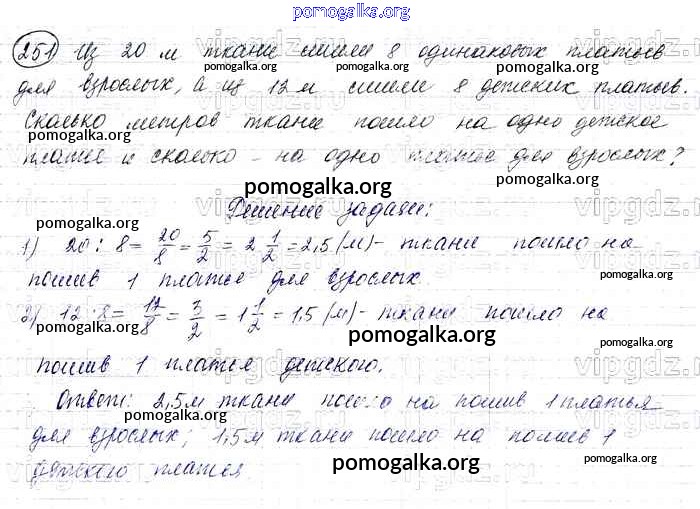 pomogalka.org
251 Из 20 м ткани сшили 8 одинаковых платьев
pomogalka.org pomogalka.org pomogalka.org
для взрослых, а из 12 м сшили 8 детских платьев.
Сколько метров ткани пошло на одно детское
pomogalka.org
платье и сколько - на одно платье для взрослых?
pomogalka.org
Решение задачи:
pomogalka.org
1) 20 : 8 = 20/8 = 5/2 = 2 1/2 = 2,5 (м) - ткани пошло на
пошив 1 платье для взрослых.
pomogalka.org pomogalka.org
2) 12 : 8 = 12/8 = 3/2 = 1 1/2 = 1,5 (м) - ткани пошло на
pomogalka.org
пошив 1 платья детского.
Ответ: 2,5 м ткани пошло на пошив 1 платья
pomogalka.org pomogalka.org
для взрослых; 1,5 м ткани пошло на пошив 1
pomogalka.org
детского платья
pomogalka.org